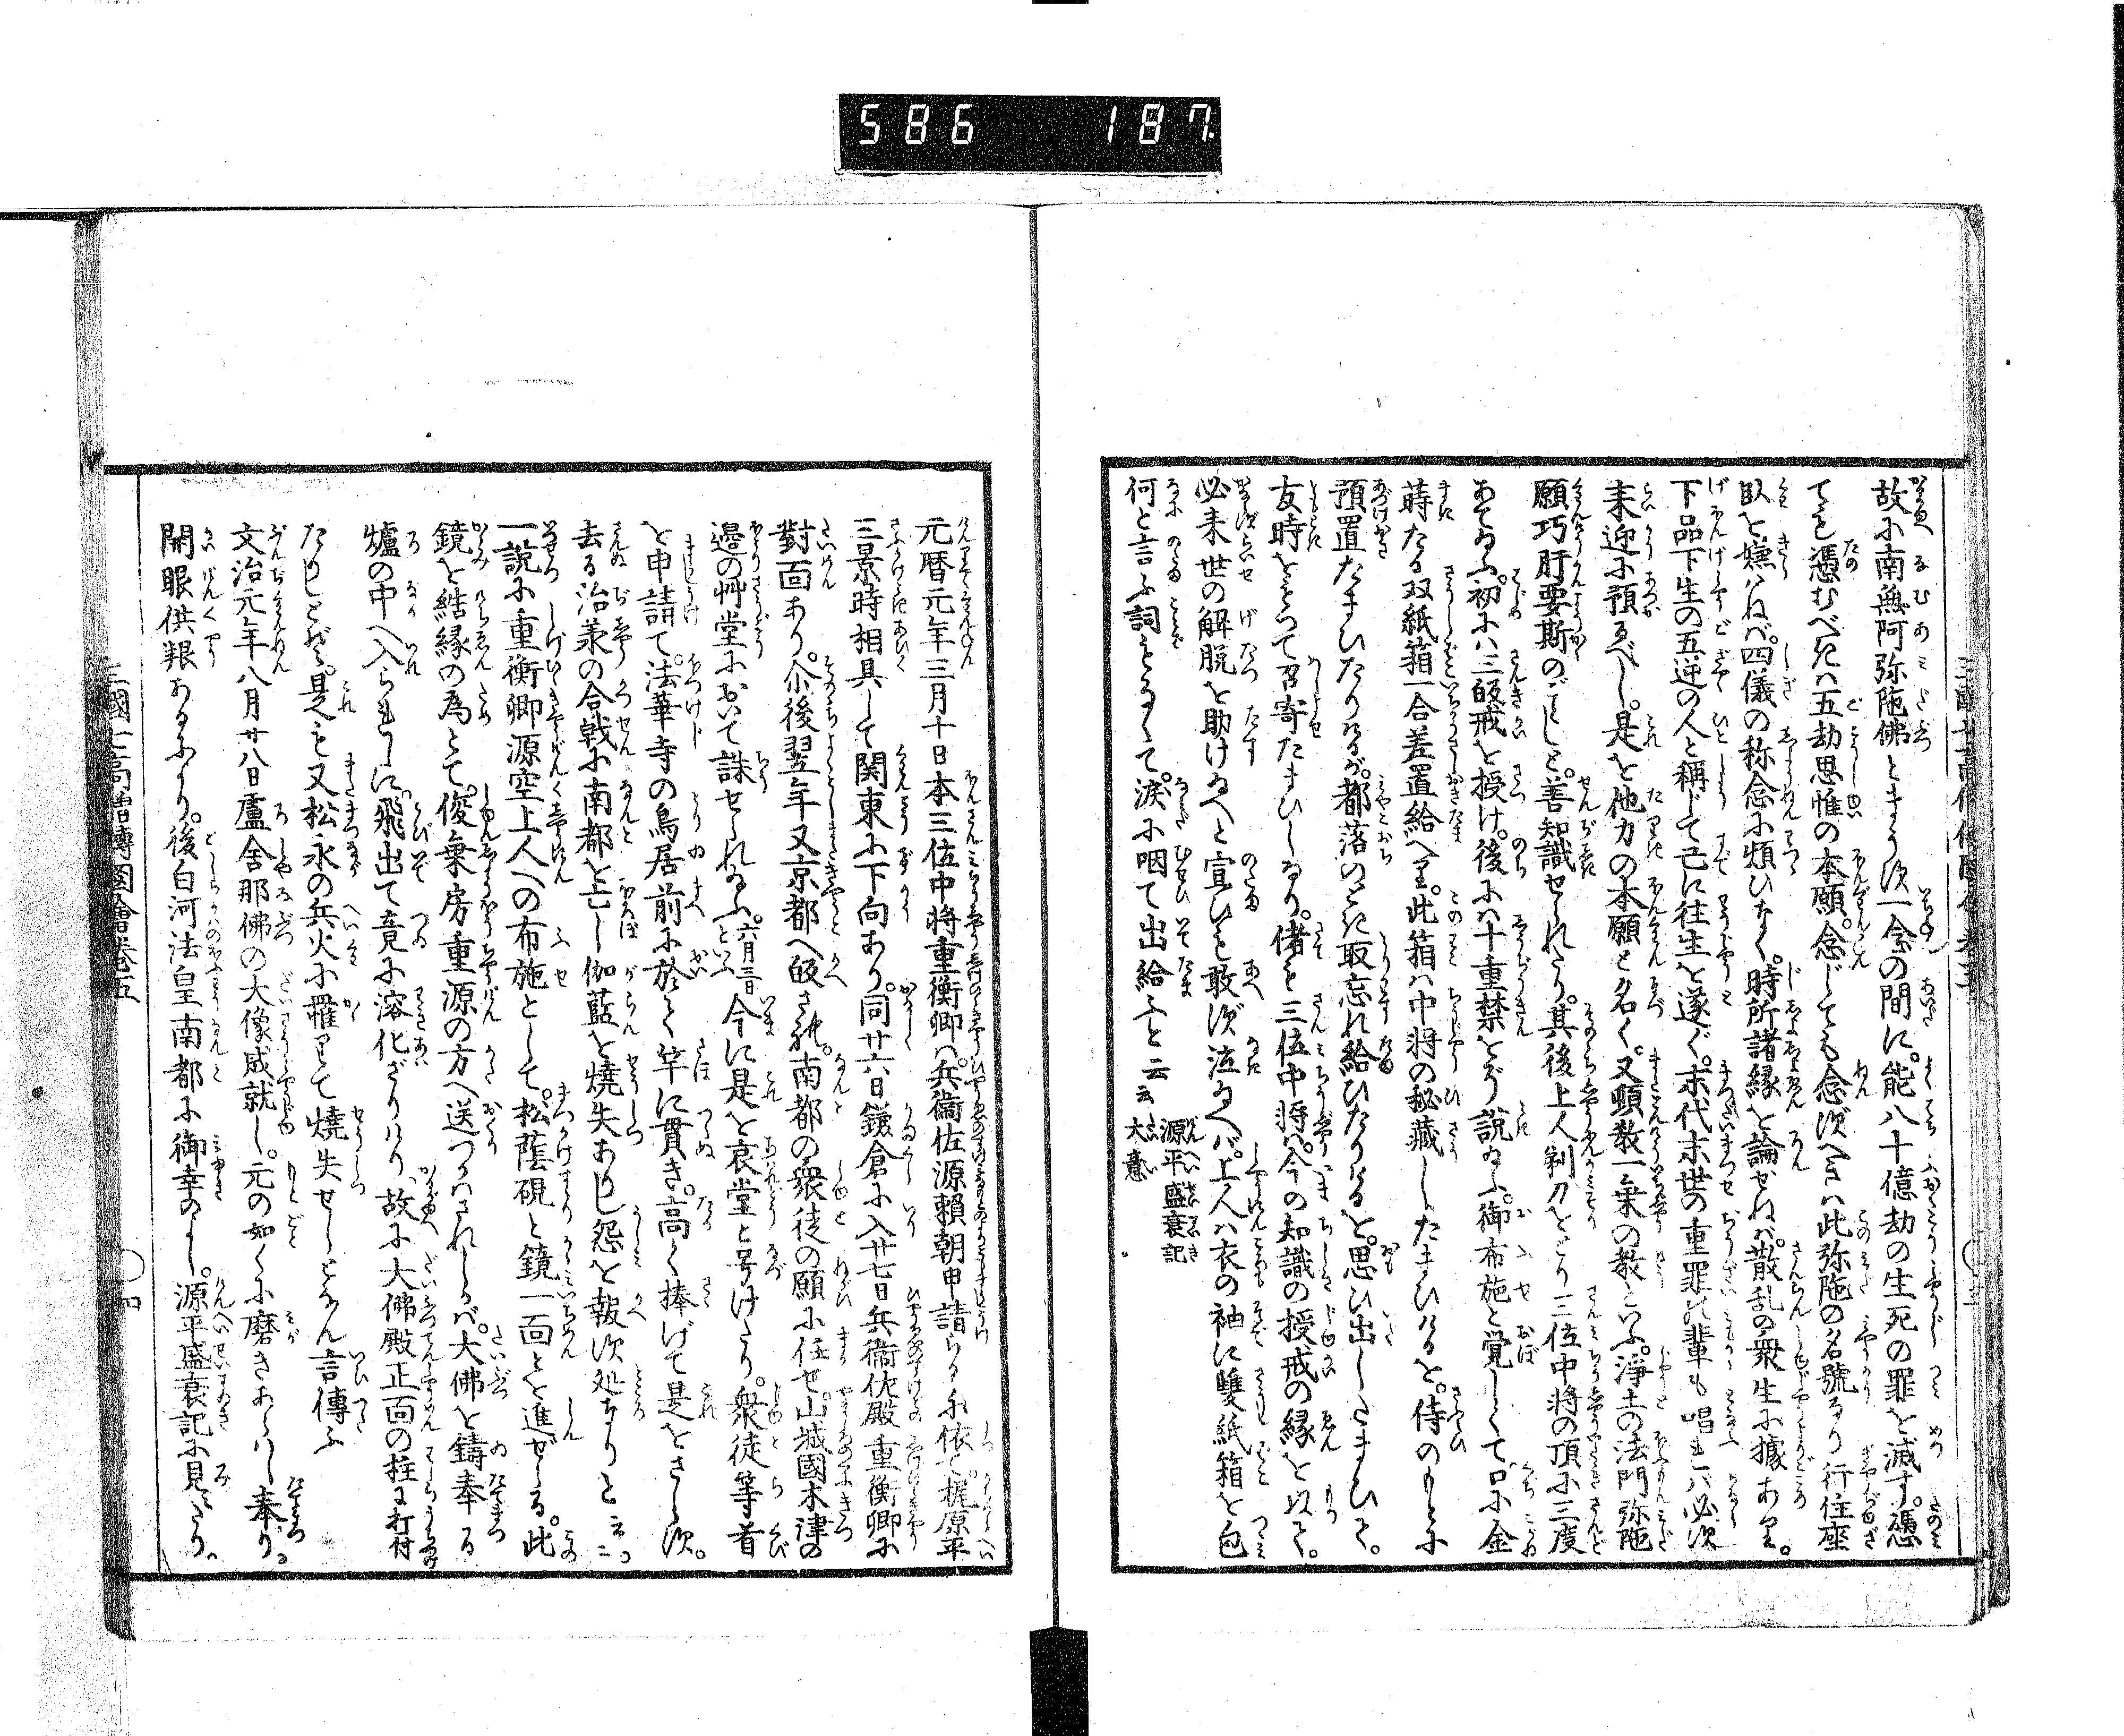 586 187
故に南無阿弥陀佛とまうす一念の間に。能八十億劫の生死の罪を滅す。憑
ても憑むべきは五劫思惟の本願。念じても念ずべきは此弥陀の名號なり行住座
臥を嫌はねば。四儀の称念に煩ひなく。時所諸縁を論ぜねば。散乱の衆生に據あり。
下品下生の五逆の人と稱じて已に往生を遂ぐ。末代末世の重罪の輩も唱れば必ず
来迎に預るべし。是を他力の本願と名く。又頓教一乗の教といふ。浄土の法門弥陀
願巧肝要斯のごとしと。善知識せられたり。其後上人剃刀をとり三位中将の頂に三度
あて給ふ。初には三皈戒を授け。後には十重禁をぞ説給ふ。御布施と覚しくて口に金
蒔たる双紙箱一合差置給へり。此箱は中将の秘藏したまひけるを。侍のもとに
預置たまひたりけるが。都落のとき取忘れ給ひたりけると。思ひ出したまひて。
友時をもつて召寄たまひしなり。偖も三位中将は。今の知識の授戒の縁を以て。
必来世の解脱を助け給へと宣ひも敢ず泣給へば。上人は衣の袖に雙紙箱を包
何と言ふ詞もなくて。涙に咽て出給ふと云云 源平盛衰記大意
三國七高僧傳圖會卷五 ○三
元暦元年三月十日本三位中将重衡卿は。兵衞佐源頼朝申請らるに依て。梶原平
三景時相具して関東に下向あり。同廿六日鎌倉に入廿七日兵衞佐殿重衡卿に
對面あり。尒後翌年又京都へ皈され。南都の衆徒の願に任せ。山城國木津の
邉の艸堂において誅せられ給ふ。六月三日といふ今に是を哀堂と号けたり。衆徒等首
を申請て。法華寺の鳥居前に於て竿に貫き。高く捧げて是をさらす。
去る治羕の合戦に南都を亡し伽藍を燒失ありし怨を報ず処なりと云云。
一説に重衡卿源空上人への布施として。松蔭硯と鏡一面とを進ぜらる。此
鏡を結縁の為とて。俊乗房重源の方へ送つかはされしかば。大佛を鋳奉る
爐の中へ入られしに。飛出て竟に溶化ざりけり。故に大佛殿正面の柱に打付
たりしとぞ。是も又松永の兵火に羅りて燒失せしとなん言傳ふ
文治元年八月廿八日盧舎那佛の大像成就し。元の如くに磨きあらはし奉り。
開眼供粮あるなり。後白河法皇南都に御幸のよし。源平盛衰記に見えたり。
三國七高僧傳圖會卷五 ○四